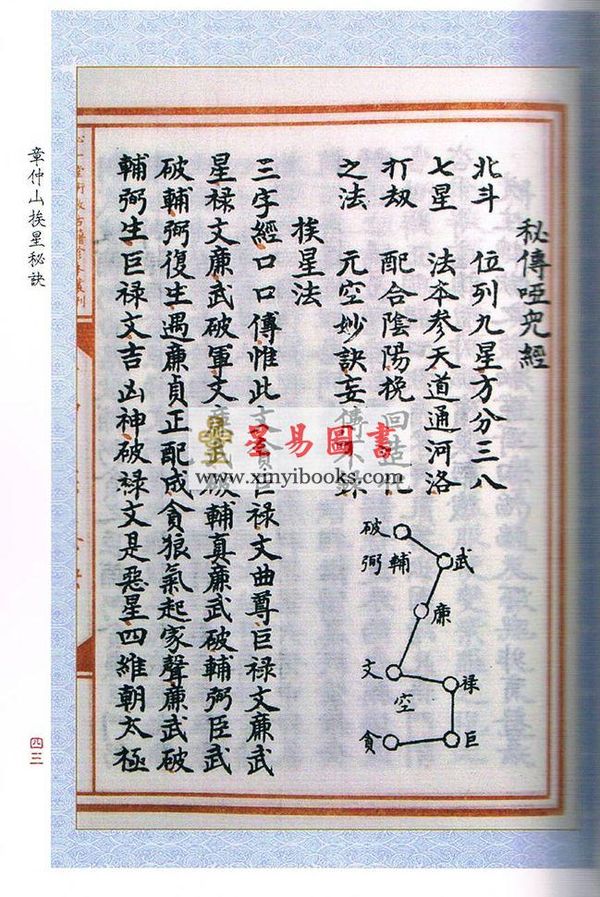 秘傳啞児經
北斗 位列九星方分三八
七星 法夲參天道通河洛
打刼 配合陰陽挽回造化
之法 元空妙訣妄傳不
挨星法
三字經口口傳惟此文貪巨禄文曲尊巨禄文廉武
星禄文廉武破軍文廉武破輔真廉武破輔弼臣武
破輔弼復生遇廉貞正配成貪狼氣起家聲廉武破
輔弼生巨禄文吉凶神破禄文是惡星四維朝太極
破
輔
弼
武
廉
文
空
禄
貪
巨
章仲山挨星秘訣
四三
星易圖書
www.xinyibooks.com